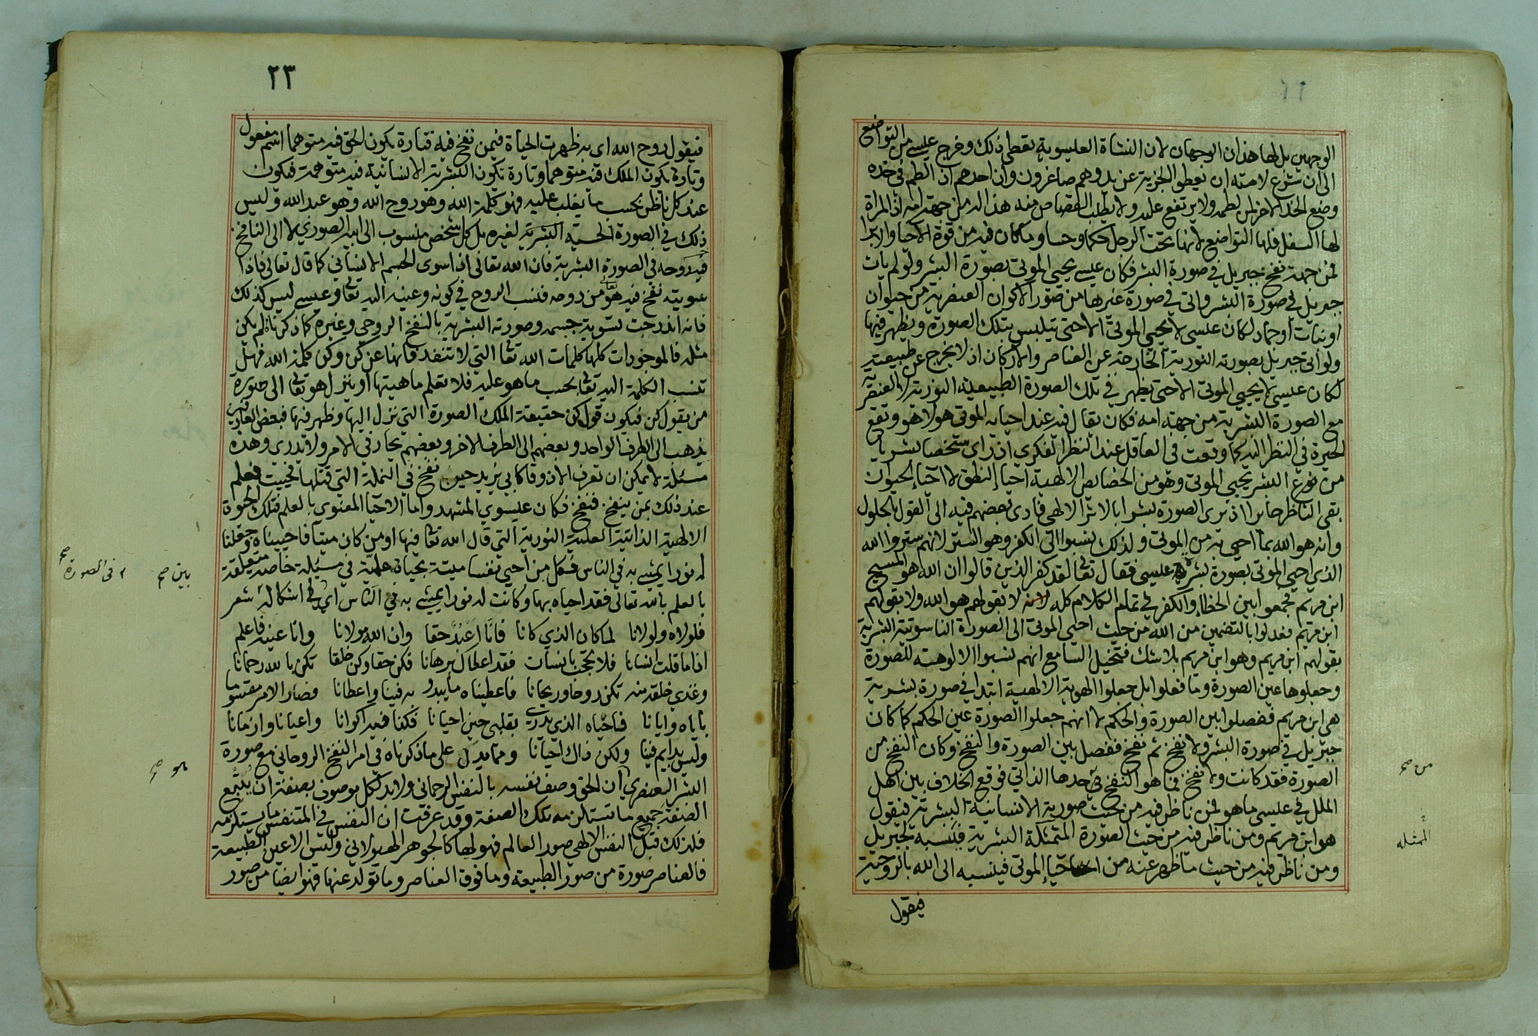 الوجهين بل لها هذان الوجهان لان النشاة العليسوية تعطي ذلك وخرج عيسى من التواضع
الى ان شرع لامته ان يعطوا الجزية عن يد وهم صاغرون وان احدهم اذا لطم في خده
وضع الخد الاخر لمن لطمه ولا يرتفع عليه ولا يطلب القصاص منه هذا له من جهة امه اذ المراة
لها السفل فلها التواضع لانها تحت الرجل حكما وحسا وما كان فيه من قوة الاحيا والابرا
فمن جهة نفخ جبريل في صورة البشر فكان عيسى يحيي الموتى بصورة البشر ولو لم يات
جبريل في صورة البشر واتى في صورة غيرها من صور الاكوان العنصرية من حيوان
او نبات او جماد لكان عيسى لا يحيي الموتى الا حتى يتلبس بتلك الصورة ويظهر فيها
ولو اتى جبريل بصورته النورية الخارجة عن العناصر والاركان اذ لا يخرج عن طبيعته
لكان عيسى لا يحيي الموتى الا حتى يظهر في تلك الصورة الطبيعية النورية لا العنصرية
مع الصورة البشرية من جهة امه فكان يقال فيه عند احيائه الموتى هو لا هو وتقع
الحيرة في النظر اليه كما وقعت في العاقل عند النظر الفكري اذا راى شخصا بشريا
من نوع البشر يحيي الموتى وهو من الخصائص الالهية احيا النطق لا احيا الحيوان
بقي الناظر حائرا اذ يرى الصورة بشرا بالاثر الالهي فادى بعضهم فيه الى القول بالحلول
وانه هو الله بما احيى به من الموتى ولذلك نسبوا الى الكفر وهو الستر لانهم ستروا الله
الذي احيى الموتى بصورة بشرية عيسى فقال تعالى لقد كفر الذين قالوا ان الله هو المسيح
ابن مريم فجمعوا بين الخطأ والكفر في تمام الكلام كله لانه لا بقولهم هو الله ولا بقولهم
ابن مريم فعدلوا بالتضمين من الله من حيث احيى الموتى الى الصورة الناسوتية البشرية
بقولهم ابن مريم وهو ابن مريم بلا شك فتخيل السامع انهم نسبوا الالوهية للصورة
وجعلوها عين الصورة وما فعلوا بل جعلوا الهوية الالهية ابتدا في صورة بشرية
هي ابن مريم ففصلوا بين الصورة والحكم لا انهم جعلوا الصورة عين الحكم كما كان
جبريل في صورة البشر ولا نفخ ثم نفخ ففصل بين الصورة والنفخ وكان النفخ من
الصورة فقد كانت ولا نفخ فما هو النفخ في حدها الذاتي فوقع الخلاف بين اهل
من صح
الملل في عيسى ما هو فمن ناظر فيه من حيث صورته الانسانية البشرية فيقول
هو ابن مريم ومن ناظر فيه من حيث الصورة المتمثلة البشرية فينسبه لجبريل
الممثله
ومن ناظر فيه من حيث ما ظهر عنه من احيا الموتى فينسبه الى الله بالروحية
فيقول
٢٣
فيقول روح الله اى به ظهرت الحياة فيمن نفخ فيه فتارة يكون الحق فيه متوهما اسم مفعول
وتارة يكون الملك فيه متوهما وتارة تكون البشرية الانسانية فيه متوهمة فيكون
عند كل ناظر بحسب ما يغلب عليه فهو كلمة الله وهو روح الله وهو عبد الله وليس
ذلك في الصورة الحسية البشرية لغيره بل كل شخص منسوب الى ابيه الصوري لا الى النافخ
فيه روحه في الصورة البشرية فان الله تعالى اذا سوى الجسم الانساني كما قال تعالى فاذا
سويته نفخ فيه هو من روحه فنسب الروح في كونه وعينه اليه تعالى وعيسى ليس كذلك
فانه اندرجت تسوية جسمه وصورته البشرية بالنفخ الروحي وغيره كما ذكرنا لم يكن
مثله فالموجودات كلها كلمات الله تعالى التي لا تنفد فانها عن كن وكن كلمة الله فهل
تنسب الكلمة اليه تعالى بحسب ما هو عليه فلا تعلم ماهيتها او ينزل هو تعالى الى صورة
من يقول كن فيكون قول كن حقيقة لتلك الصورة التي نزل اليها وظهر فيها فبعض العارفين
يذهب الى الطرف الواحد وبعضهم الى الطرف الاخر وبعضهم يحار في الامر ولا يدري وهذه
مسئلة لا يمكن ان تعرف الا ذوقا كابي يزيد حين نفخ في النملة التي قتلها فحييت فعلم
عند ذلك بمن ينفخ فنفخ فكان عيسوي المشهد واما الاحيا المعنوي بالعلم فتلك الحيوة
الالهية الذاتية العلية النورية التي قال الله تعالى فيها اومن كان ميتا فاحييناه وجعلنا
له نورا يمشي به في الناس فكل من احيى نفسا ميتة بحياة علمية في مسئلة خاصة متعلقة
بين صح
في الصورة صح
بالعلم بالله تعالى فقد احياه بها وكانت له نورا يمشي به في الناس اي في اشكاله شعر
فلولاه ولولانا لما كان الذي كانا فانا اعبد حقا وان الله مولانا وانا عينه فاعلم
اذا ما قلت انسانا فلا تحجب بانسان فقد اعطاك برهانا فكن حقا وكن خلقا تكن بالله رحمانا
وغذي خلقه منه تكن روحا وريحانا فاعطيناه ما يبدو به فينا واعطانا فصار الامر مقسوما
باياه وايانا فاحياه الذي يدري بقلبي حين احيانا فكنا فيه اكوانا واعيانا وازمانا
وليس بدايم فينا ولكن ذاك احيانا ومما يدل على ما ذكرناه في امر النفخ الروحاني مع صورة
البشر العنصري ان الحق وصف نفسه بالنفس الرحماني ولا بد لكل موصوف بصفة ان يتبع
الصفة جميع ما تستلزمه تلك الصفة وقد عرفت ان النفس في المتنفس ما يستلزمه
فلذلك قبل النفس الالهي صور العالم فهو لها كالجوهر الهيولاني وليس الا عين الطبيعة
فالعناصر صورة من صور الطبيعة وما فوق العناصر وما تولد عنها فهو ايضا من صور